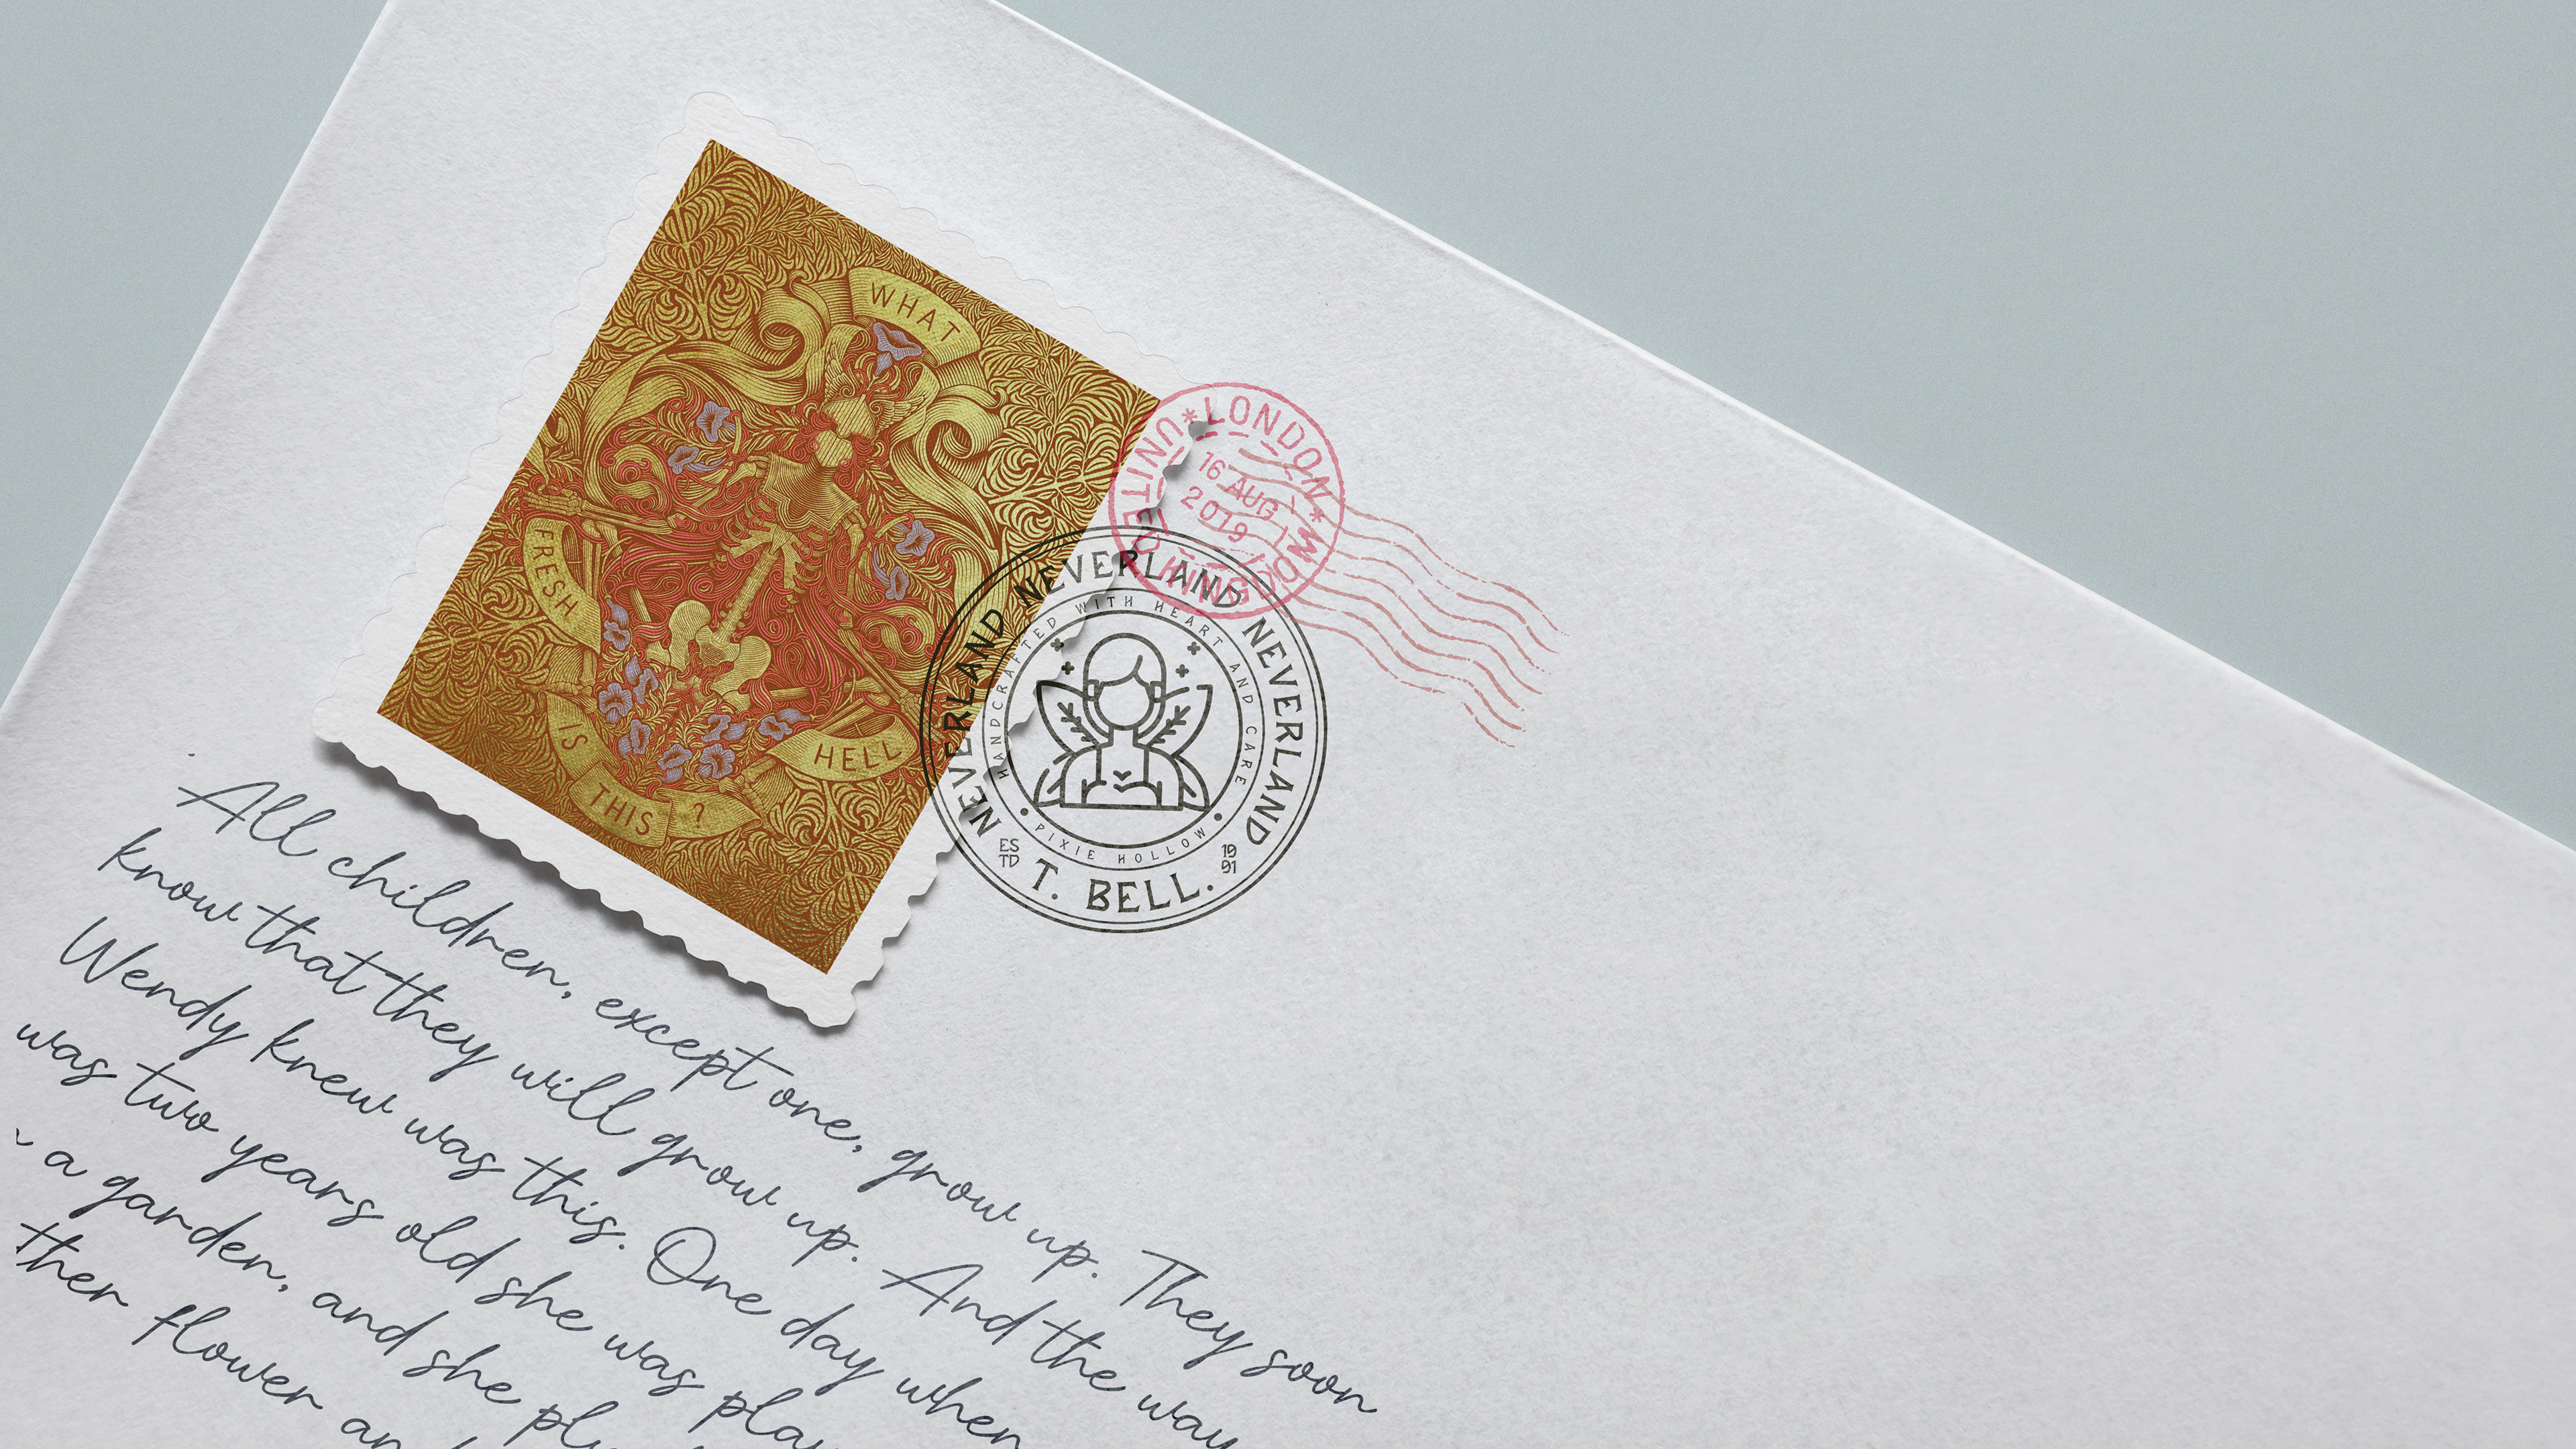 WHAT
FRESH
HELL
IS
THIS ?
*LONDON*
UNITED KINGDOM
16 AUG
2019
NEVERLAND NEVERLAND NEVERLAND
HANDCRAFTED WITH HEART AND CARE
• PIXIE HOLLOW •
ES
TD
19
91
T. BELL.
All children, except one, grow up. They soon
know that they will grow up. And the way
Wendy knew was this. One day when
was two years old she was
a garden, and she
ther flower